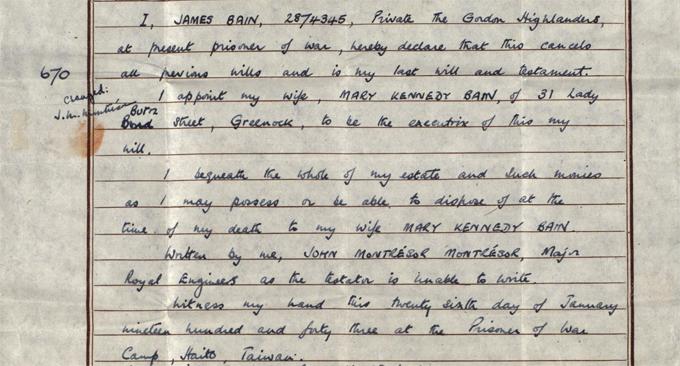 I, JAMES BAIN, 2874345, Private The Gordon Highlanders,
at present prisoner of war, hereby declare that this cancels
670
all previous wills and is my last will and testament.
Changed:
I appoint my wife, MARY KENNEDY BAIN, of 31 Lady
J.M.
Burn
Bond Street, Greenock, to be the executrix of this my
will.
I bequeath the whole of my estate and such monies
as I may possess or be able to dispose of at the
time of my death to my wife MARY KENNEDY BAIN.
Written by me, JOHN MONTRÉSOR MONTRÉSOR, Major
Royal Engineers as the testator is unable to write.
Witness my hand this twenty sixth day of January
nineteen hundred and forty three at the Prisoner of War
Camp, Haito, Taiwan.